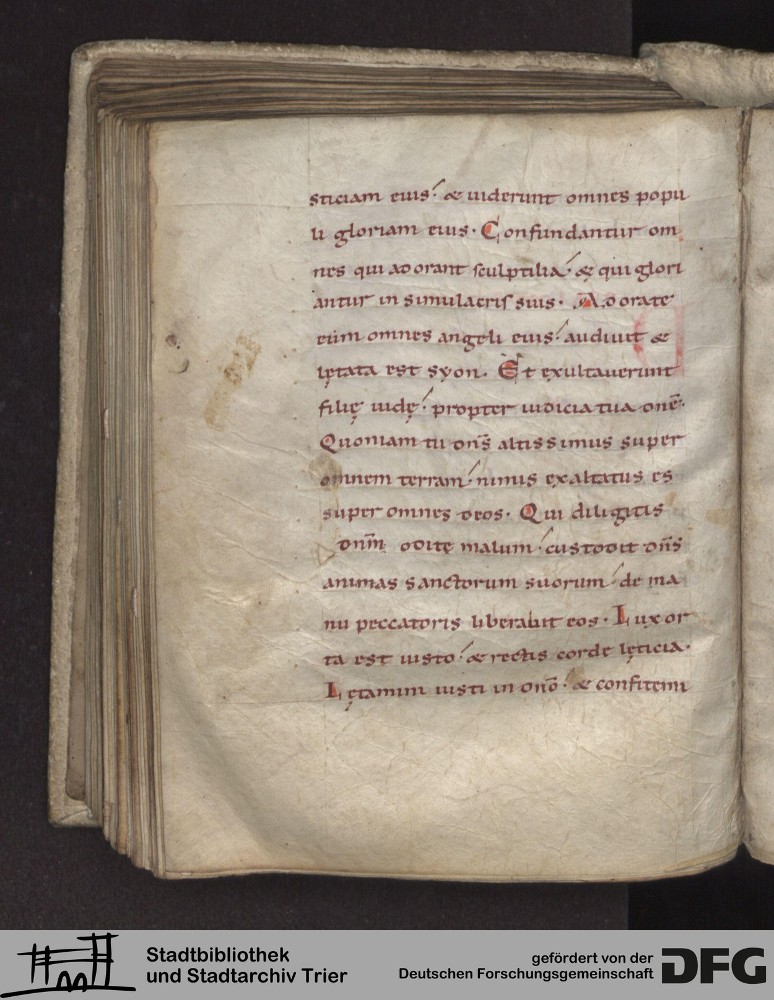 sticiam eius: & uiderunt omnes popu
li gloriam eius. Confundantur om
nes qui adorant sculptilia: & qui glori
antur in simulacris suis. Adorate
eum omnes angeli eius: audiuit &
lętata est syon. Et exultauerunt
filię iudę: propter iudicia tua dn̄e.
Quoniam tu dn̄s altissimus super
omnem terram: nimis exaltatus es
super omnes deos. Qui diligitis
dn̄m odite malum: custodit dn̄s
animas sanctorum suorum: de ma
nu peccatoris liberabit eos. Lux or
ta est iusto: & rectis corde lęticia.
Lętamini iusti in dn̄o. & confitemi
Stadtbibliothek
und Stadtarchiv Trier
gefördert von der
Deutschen Forschungsgemeinschaft
DFG